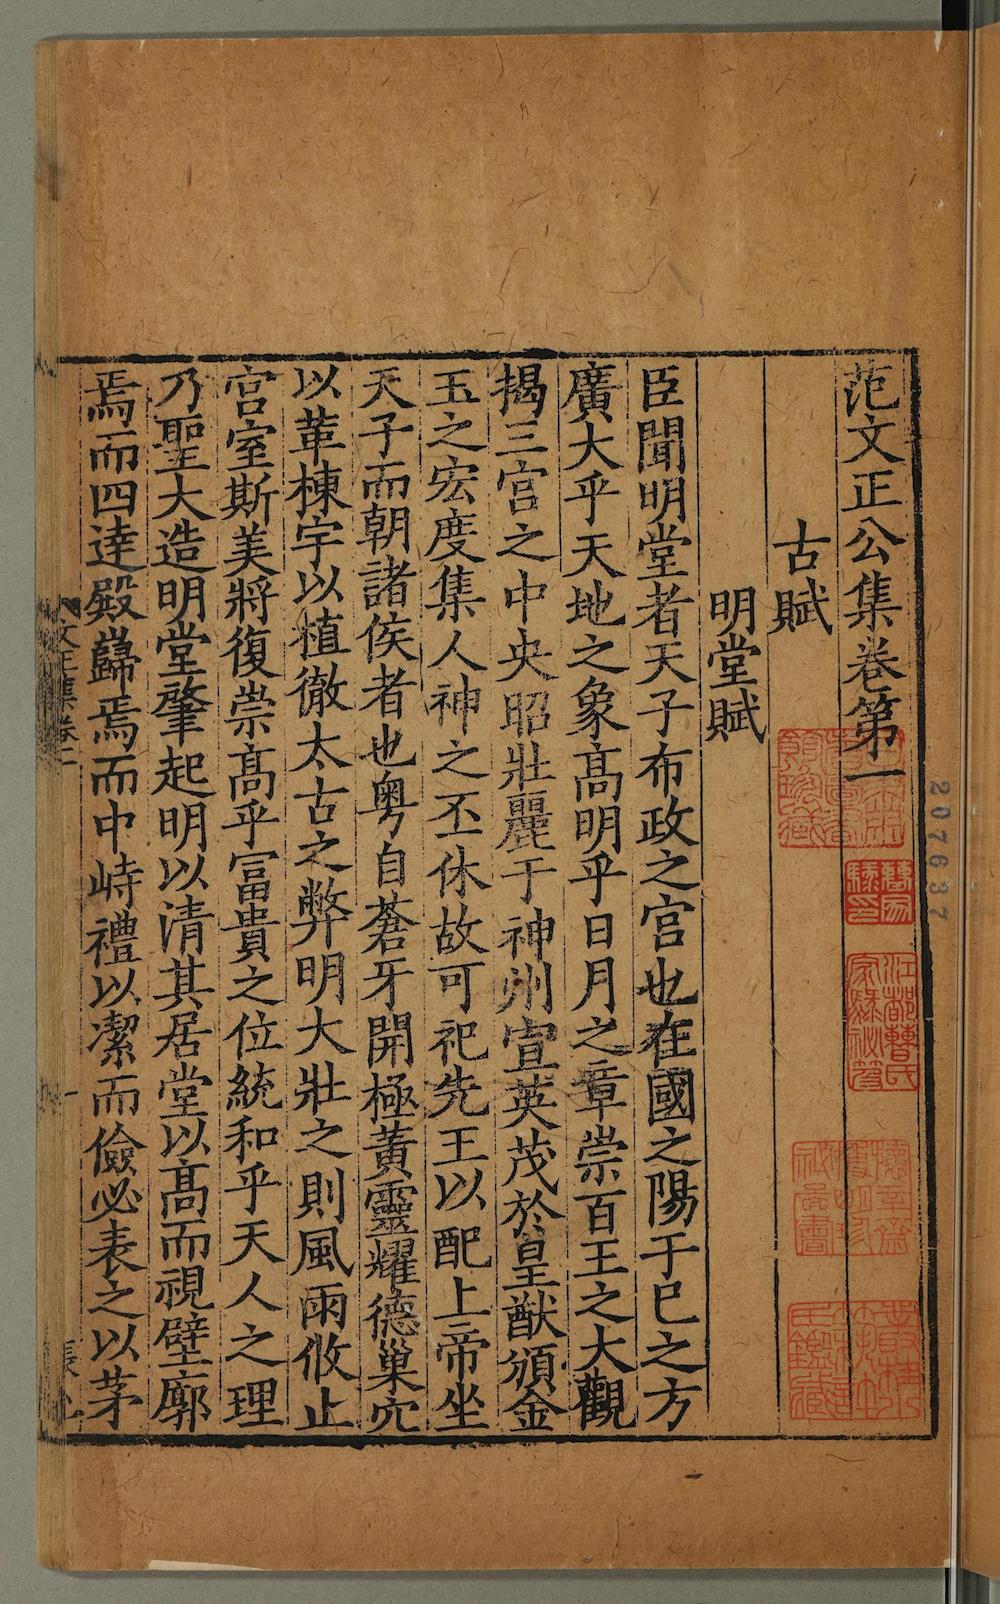 范文正公集卷第一
古賦
明堂賦
臣聞明堂者天子布政之宫也在國之陽于巳之方
廣大乎天地之象髙明乎日月之章崇百王之大觀
揭三宫之中央昭壯麗于神州宣英茂於皇猷頒金
玉之宏度集人神之丕休故可祀先王以配上帝坐
天子而朝諸侯者也粤自蒼牙開極黄靈耀德巢穴
以革棟宇以植徹太古之弊明大壯之則風雨攸止
宫室斯美將復崇髙乎冨貴之位統和乎天人之理
乃聖大造明堂肇起明以清其居堂以髙而視壁廓
焉而四達殿巋焉而中峙禮以潔而儉必表之以茅
文正集卷一
一
江都曹氏
家驥秘笈
207637